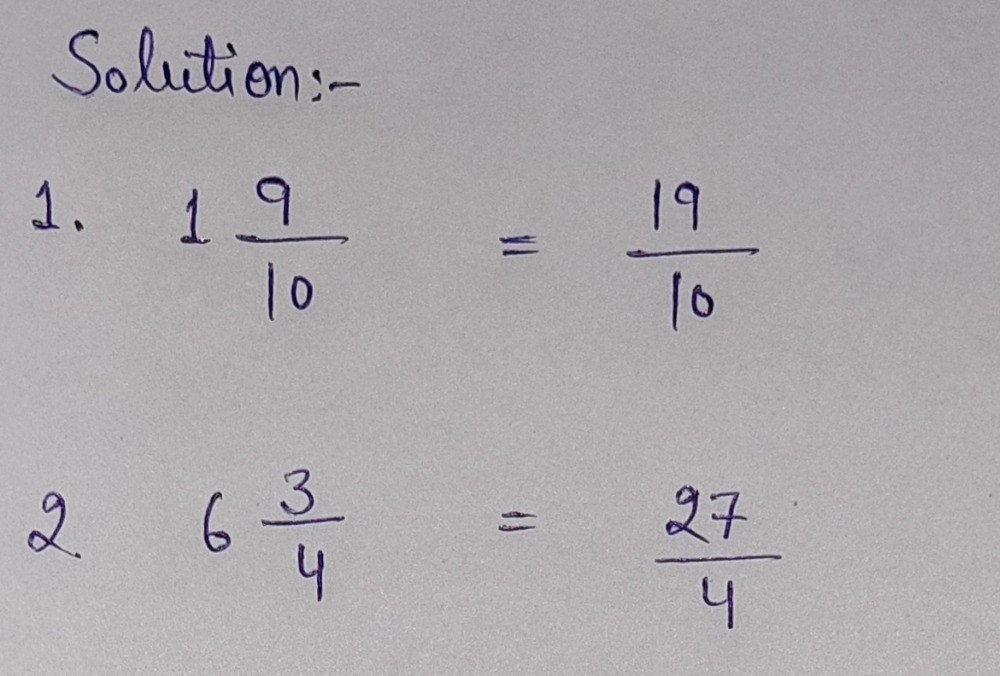 Solution:-
1. 1 9/10 = 19/10
2. 6 3/4 = 27/4